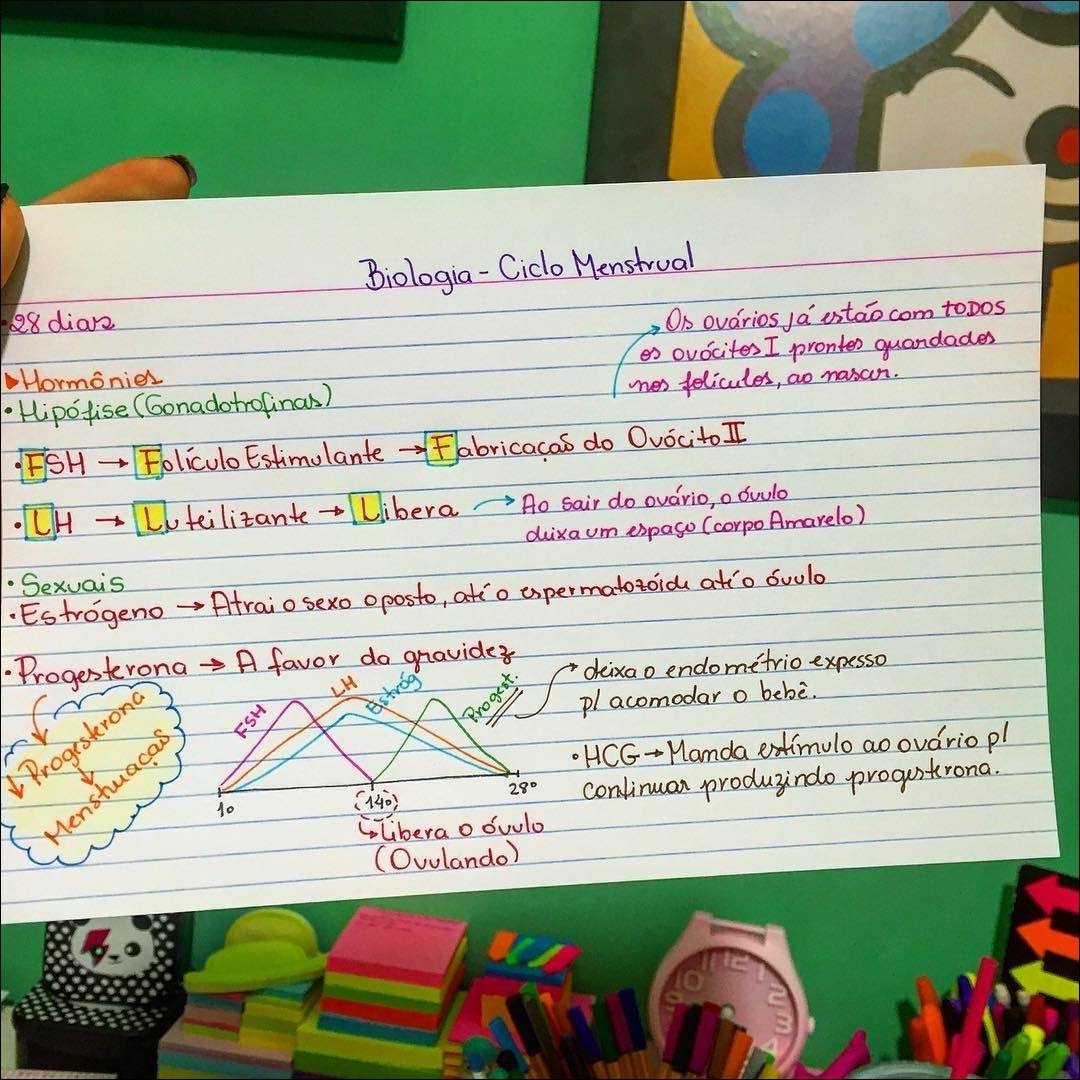 Biologia - Ciclo Menstrual
•28 dias
Os ovários já estão com TODOS
os ovócitos I prontos guardados
nos folículos, ao nascer.
Hormônios
•Hipófise (Gonadotrofinas)
•FSH → Folículo Estimulante → Fabricação do Ovócito II
•LH → Luteilizante → Libera → Ao sair do ovário, o óvulo
deixa um espaço (corpo Amarelo)
•Sexuais
•Estrógeno → Atrai o sexo oposto, até o espermatozóide até o óvulo
•Progesterona → A favor da gravidez
→ deixa o endométrio expesso
p/ acomodar o bebê.
↓ Progesterona
↓
Menstruaças
FSH
LH
Estróg
Progest.
1º
(14º)
28º
↳ Libera o óvulo
(Ovulando)
•HCG → Manda estímulo ao ovário p/
continuar produzindo progesterona.
10
11
12
1
2
3
4